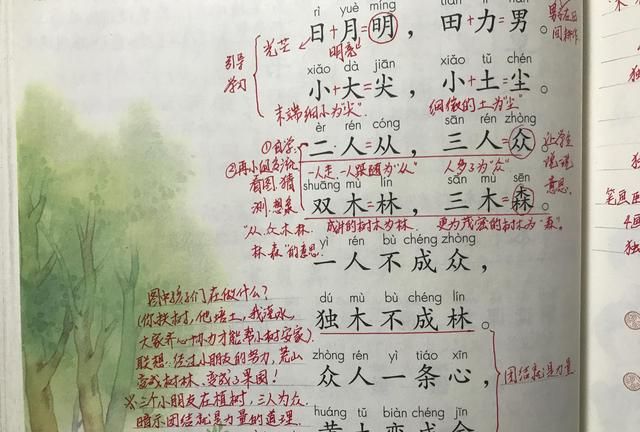 rì yuè míng
日月明，田力男。
日+月=明，田+力=男。
光芒
明亮
引导
学习
xiǎo dà jiān xiǎo tǔ chén
小+大=尖，小+土=尘。
末端细小为"尖"。
èr rén cóng sān rén zhòng
二人从，三人众
①自学
一人走，一人跟随为"从"
人多了为"众"
②再小组交流
看图、猜
测、想象
"从、众、木、林、
林、森"的意思。
shuāng mù lín sān mù sēn
双木林，三木森。
成片的树木为林。
更为茂密的树木为"森"。
意思。
yì rén bù chéng zhòng
一人不成众，
dú mù bù chéng lín
独木不成林。
图中孩子们在做什么？
(你扶树，他培土，我浇水，
大家齐心协力才能帮小树安家)
联想：经过小朋友的努力，荒山
变成树林、变成了果园！
※三个小朋友在植树，三人为众
暗示团结就是力量的道理。
zhòng rén yì tiáo xīn
众人一条心，
团结就是力量
huáng tǔ biàn chéng
黄土变成
笔画
4画
独